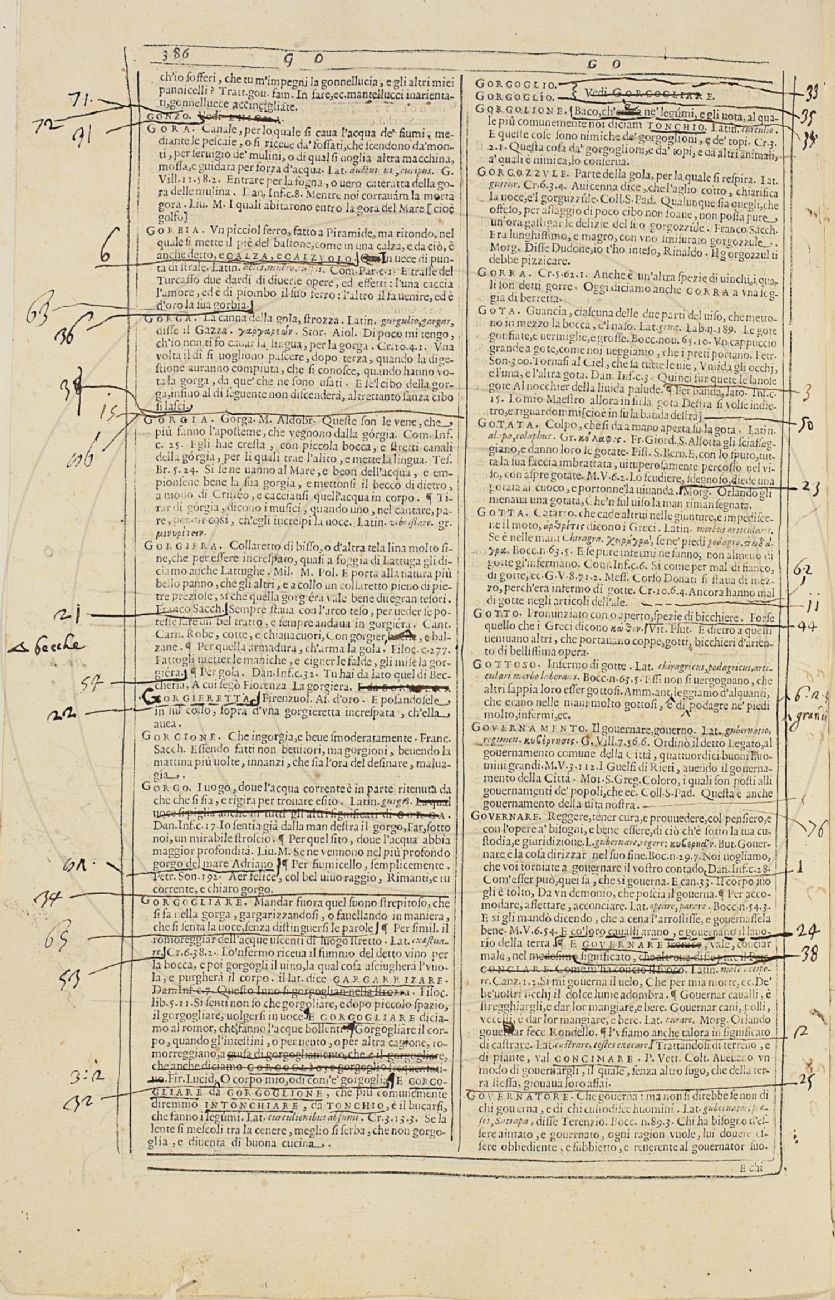 386
G O
G O
ch'io sofferi, che tu m'impegni la gonnelluccia, e gli altri miei
pannicelli? Tratt.gou. fam. In fare, ec. mantellucci inarienta-
ti, gonnellucce accincigliate.
GONZO. Vedi
GORA. Canale, per lo quale si caua l'acqua de' fiumi, me-
diante le pescaie, o si riceue da' fossati, che scendono da'mon-
ti, per seruigio de' mulini, o di qual si uoglia altra macchina,
mossa, e guidata per forza d'acqua. Lat. G.
Vill. 11. 58. 2. Entrare per la fogna, o uero cateratta della go-
ra delle mulina. Dan. Inf. c. 8. Mentre noi corrauám la morta
gora. Liu. M. I quali abitarono entro la gora del Mare [cioè
golfo]
GORBIA. Vn picciol ferro, fatto a Piramide, ma ritondo, nel
quale si mette il piè del bastone, come in una calza, e da ciò, è
anche detto, e CALZA, e CALZVOLO In uece di pun-
ta di strale. Latin. Com. Par. c. 1. E trasse del
Turcasso due dardi di diuerse opere, ed effetti: l'una caccia
l'amore, ed è di piombo il suo ferro: l'altro il fa uenire, ed è
d'oro la sua gorbia
GORGA. La canna della gola, strozza. Latin. gurgulio, gargar,
disse il Gazza. γαργαρεών. Stor. Aiol. Di poco mi tengo,
ch'io non ti fo cauar la lingua, per la gorga. Cr. 10. 4. 1. Vna
volta il dì si uogliono pascere, dopo terza, quando la dige-
stione auranno compiuta, che si conosce, quando hanno vo-
ta la gorga, da que' che ne sono usati. E se'l cibo della gor-
ga, infino al dì seguente non discenderà, altrettanto sanza cibo
si lasci
GORGIA. Gorga. M. Aldobr. Queste son le vene, che
più fanno l'aposteme, che vegnono dalla górgia. Com. Inf.
c. 25. Egli hae cresta, con piccola bocca, e stretti canali
della górgia, per li quali trae l'alito, e mette la lingua. Tes.
Br. 5. 24. Si se ne uanno al Mare, e beon dell'acqua, e em-
pionsene bene la sua gorgia, e mettonsi il becco di dietro,
a modo di Cristeo, e cacciansi quell'acqua in corpo. ¶ Ti-
rar di górgia, dicono i musici, quando uno, nel cantare, pa-
re, per così, ch'egli increspi la uoce. Latin. vibrissare. gr.
GORGIERA. Collaretto di bisso, o d'altra tela lina molto fi-
ne, che per essere increspato, quasi a foggia di Lattuga gli di-
ciamo anche Lattughe. Mil. M. Pol. E porta alla natura più
bello panno, che gli altri, e a collo un collaretto pieno di pie-
tre preziose, sì che quella gorgiera vale bene due gran tesori.
Franco Sacch. Sempre staua con l'arco teso, per ueder se po-
tesse fare un bel tratto, e sempre andaua in gorgiera. Cant.
Carn. Robe, cotte, e chiauacuori, Con gorgier e bal-
zane. ¶ Per quella armadura, ch'arma la gola. Filoc. c. 277.
Fattogli metter le maniche, e cigner le falde, gli mise la gor-
giera. ¶ Per gola. Dan. Inf. c. 32. Tu hai da lato quel di Bec-
cheria, A cui segò Fiorenza la gorgiera.
GORGIERETTA. Firenzuol. As. d'oro. E posandosele
in sul collo, sopra d'vna gorgieretta increspata, ch'ella
auea.
GORGIONE. Che ingorgia, e beue smoderatamente. Franc.
Sacch. Essendo fatti non beuitori, ma gorgioni, beuendo la
mattina più uolte, innanzi, che sia l'ora del desinare, malua-
gia.
GORGO. Luogo, doue l'acqua corrente è in parte ritenuta da
che che si sia, e rigira per trouare esito. Latin. gurges. La qual
uoce si piglia anche in tutti gli altri significati di GORGA.
Dan. Inf. c. 17. Io sentia già dalla man destra il gorgo, Far, sotto
noi, un mirabile stroscio. ¶ Per quel sito, doue l'acqua abbia
maggior profondità. Liu. M. Se ne vennono nel più profondo
gorgo del mare Adriano ¶ Per fiumicello, semplicemente.
Petr. Son. 192. Aer felice, col bel uiuo raggio, Rimanti, e tu
corrente, e chiaro gorgo.
GORGOGLIARE. Mandar fuora quel suono strepitoso, che
si fa nella gorga, gargarizzandosi, o fauellando in maniera,
che si senta la uoce, senza distinguersi le parole ¶ Per simil. il
romoreggiar dell'acque uscenti di luogo stretto. Lat. exæstua-
re. Cr. 6. 38. 2. Lo'nfermo riceua il fummo del detto vino per
la bocca, e poi gorgogli il uino, la qual cosa asciugherà l'vuo-
la, e purgherà il corpo. il lat. dice GARGARRIZARE.
Dan. Inf. c. 7. Quest'inno si gorgoglian nella strozza. Filoc.
lib. 5. 11. Sì senti non so che gorgogliare, e dopo piccolo spazio,
il gorgogliare, volgersi in uoce E GORGOGLIARE dicia-
mo al romor, che fanno l'acque bollente Gorgogliare il cor-
po, quando gl'intestini, o per uento, o per altra cagione, ro-
moreggiano, a guisa di gorgogliamento, che è il gorgogliare,
che anche diciamo GORGOGLIO
Fir. Lucid. O corpo mio, odi con'e' gorgoglia E GORGO-
GLIARE da GORGOGLIONE, che più comunemente
diremmo INTONCHIARE, da TONCHIO, è il bucarsi,
che fanno i legumi. Lat. curculionibus absumi. Cr. 3. 13. 3. Se la
lente si mescoli tra la cenere, meglio si serba, che non gorgo-
glia, e diuenta di buona cucina.
GORGOGLIO.
GORGOGLÍO. Vedi GORGOGLIARE.
GORGOLIONE. Baco, ch'è ne' legumi, e gli uota, al qua-
le più comunemente noi diciam TONCHIO. Latin.
E queste cose sono nimiche de' gorgoglioni, e de' topi. Cr. 3.
2. 1. Questa cosa da' gorgoglioni, e da' topi, e da altri animali,
a' quali è nimica, lo conserua.
GORGOZZVLE. Parte della gola, per la quale si respira. Lat.
guttur. Cr. 6. 3. 4. Auicenna dice, che l'aglio cotto, chiarifica
la uoce, e'l gorguzzule. Coll. S. Pad. Qualunque sia quegli, che
offeso, per assaggio di poco cibo non soaue, non possa pure
un'ora gastigar le delizie del suo gorgozzule. Franco. Sacch.
Era lunghissimo, e magro, con vno smisurato gorgozzule.
Morg. Disse Dudone, io t'ho inteso, Rinaldo, Il gorgozzul ti
debbe pizzicare.
GORRA. Cr. 5. 62. 1. Anche è un'altra spezie di uinchi, i qua-
li son detti gorre. Oggi diciamo anche GORRA a vna fog-
gia di berretta.
GOTA. Guancia, ciascuna delle due parti del uiso, che metto-
no in mezzo la bocca, e'l naso. Lat. gena. Lab. n. 189. Le gote
gonfiate, e uermiglie, e grosse. Bocc. nou. 65. 10. Vn cappuccio
grande a gote, come noi ueggiamo, che i preti portano. Petr.
Son. 300. Tornasi al Ciel, che sa tutte le uie, Vmida gli occhi,
e l'una, e l'altra gota. Dan. Inf. c. 3. Quinci fur quete le lanose
gote Al nocchier della liuida palude. ¶ Per banda, lato. Inf. c.
15. Lo mio Maestro allora in su la gota Destra si volse indie-
tro, e riguardommi [cioè in su la banda destra]
GOTATA. Colpo, che si dà a mano aperta su la gota. Latin.
alapa, colaphus. Gr. κόλαφος. Fr. Giord. S. Allotta gli sciasseg-
giano, e danno loro le gotate. Pist. S. Bern. E, con lo sputo, tut-
ta la sua faccia imbrattata, uituperosamente percosso nel vi-
so, con aspre gotate. M. V. 6. 2. Lo scudiere, isdegnolo, diede una
gotata al cuoco, e portonne la uiuanda. Morg. Orlando gli
menaua una gotata, Che'n sul uiso la man riman segnata.
GOTTA. Catarro, che cade altrui nelle giunture, e impedisce-
ne il moto, ἀρθρῖτις dicono i Greci. Latin. morbus articularis.
Se è nelle mani Chiragra. χειράγρα, se ne' piedi podagra
Bocc. n. 63. 5. E se pure infermi ne fanno, non almeno di
gotte gl'infermano. Com. Inf. c. 6. Sì come per mal di fianco,
di gotte, ec. G. V. 8. 71. 2. Mess. Corso Donati si staua di mez-
zo, perch'era infermo di gotte. Cr. 10. 64. Ancora hanno mal
di gotte negli articoli dell'ale.
GOTTO. Pronunziato con o aperto, spezie di bicchiere. Forse
quello che i Greci dicono κώθων. Vit. Plut. E dietro a questi
ueniuano altri, che portauano coppe, gotti, bicchieri d'arien-
to di bellissima opera.
GOTTOSO. Infermo di gotte. Lat. chiragricus, podagricus, arti-
culari morbo laborans. Bocc. n. 63. 5. Essi non si uergognano, che
altri sappia loro esser gottosi. Amm. ant. leggiamo d'alquanti,
che erano nelle mani molto gottosi, e di podagre ne' piedi
molto, infermi, ec.
GOVERNAMENTO. Il gouernare, gouerno. Lat. gubernatio,
regimen. κυβέρνησις. G. Vill. 7. 56. 6. Ordinò il detto Legato, al
gouernamento comune della Città, quattuordici buoni huo-
mini grandi. M. V. 3. 112. I Guelfi di Rieti, auendo il gouerna-
mento della Città. Mor. S. Greg. Coloro, i quali son posti alli
gouernamenti de' popoli, che ec. Coll. S. Pad. Questa è anche
gouernamento della uita nostra.
GOVERNARE. Reggere, tener cura, e prouuedere, col pensiero, e
con l'opere a' bisogni, e bene essere, di ciò ch'è sotto la tua cu-
stodia, e giuridizione. L. gubernare, regere; κυβερνᾶν. But. Gouer-
nare è la cosa dirizzar nel suo fine. Bocc. n. 29. 7. Noi uogliamo,
che voi torniate a gouernare il vostro contado. Dan. Inf. c. 28.
Com'esser può, quei sa, che sì gouerna. E can. 33. Il corpo suo
gli è tolto, Da vn demonio, che poscia il gouerna. ¶ Per acco-
modare, assettare, acconciare. Lat. aptare, parare. Bocc. n. 54. 3.
E sì gli mandò dicendo, che a cena l'arrostisse, e gouernassela
bene. M. V. 6. 54. E co' loro caualli arano, e gouernano il lauo-
rio della terra ¶ E GOVERNARE vale, conciar
male, nel medesimo significato,
CONCIARE. Latin. male accipe-
re. Canz. 1. 3. Sì mi gouerna il uelo, Che per mia morte, ec. De'
be' uostri occhi il dolce lume adombra. ¶ Gouernar caualli, è
stregghiargli, e dar lor mangiare, e bere. Gouernar cani, polli,
vccelli, è dar lor mangiare, e bere. Lat. curare. Morg. Orlando
gouernar fece Rondello. ¶ Vsiamo anche talora in significato
di castrare. Lat. castrare, testes execare. Trattandosi di terreno, e
di piante, val CONCIMARE. P. Vett. Colt. Aueuano vn
modo di gouernargli, il quale, senza altro sugo, che della ter-
ra stessa, giouaua loro assai.
GOVERNATORE. Che gouerna: ma non si direbbe se non di
chi gouerna, e di chi custodisce huomini. Lat. gubernator, præ-
ses, Satrapa, disse Terenzio. Bocc. n. 89. 3. Chi ha bisogno d'es-
sere aiutato, e gouernato, ogni ragion vuole, lui douere es-
sere obbediente, e subbietto, e reuerente al gouernator suo.
E chi
71.
72
91
6
63
36
15
66
21
becche
54
22
34
63
53
3:2
32
33
35
3
50
23
62
11
44
6.2.
grani
76
1
24
38
2
25